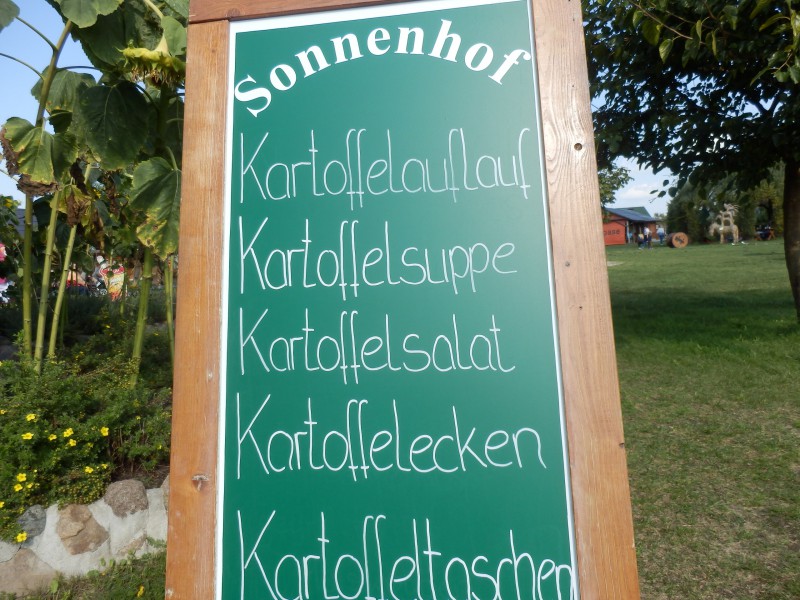 Sonnenhof
Kartoffelauflauf
Kartoffelsuppe
Kartoffelsalat
Kartoffelecken
Kartoffeltaschen